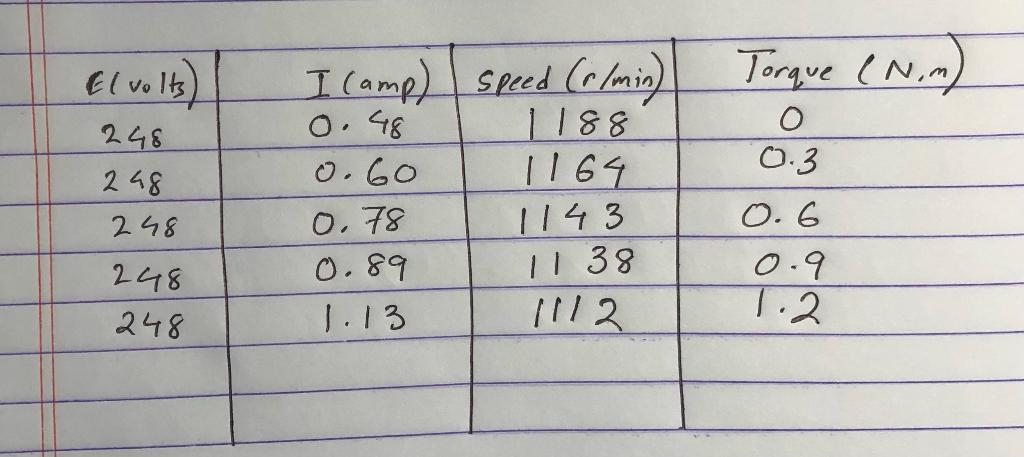 E(volts) I (amp) Speed (r/min) Torque (N.m)
248 0.48 1188 0
248 0.60 1164 0.3
248 0.78 1143 0.6
248 0.89 1138 0.9
248 1.13 1112 1.2